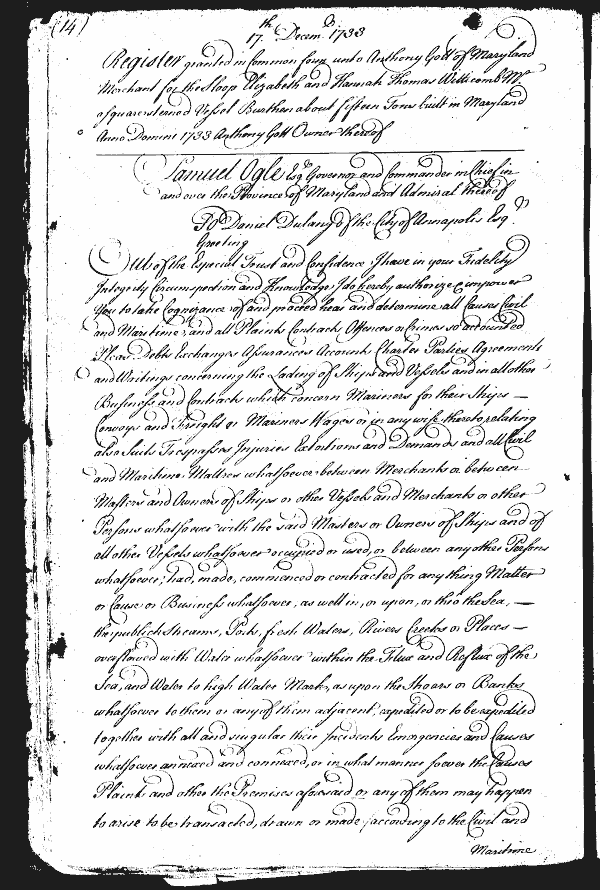 (14)
17.th Decemb.r 1733
Register granted in Common form unto Anthony Gott of Maryland
Merchant for the Sloop Elizabeth and Hannah Thomas Willcomb M.r
a square sterned Vessel Burthen about fifteen Tons built in Maryland
Anno Domini 1733 Anthony Gott Owner thereof
Samuel Ogle Esq.r Governor and Commander in Chief in
and over the Province of Maryland and Admiral thereof
To Daniel Dulany of the City of Annapolis Esq.r
Greeting
Out of the Especial Trust and Confidence I have in your Fidelity
Integrity Circumspection and Knowledge, I do hereby authorize & impower
You to take Cognizance of and proceed hear and determine all Causes Civil
and Maritime, and all Plaints Contracts Offences or Crimes so accounted
Pleas Debts Exchanges Assurances Accounts Charter Parties Agreements
and Writings concerning the Lading of Ships and Vessels and in all other
Business and Contracts which concern Mariners for their Ships —
Convoys and Freight or Mariners Wages or in any wise thereto relating
also Suits Trespasses Injuries Extortions and Demands and all Civil
and Maritime Matters whatsoever between Merchants or between
Masters and Owners of Ships or other Vessels and Merchants or other
Persons whatsoever with the said Masters or Owners of Ships and of
all other Vessels whatsoever occupied or used, or between any other Persons
whatsoever; had, made, commenced or contracted for any thing Matter
or Cause or Business whatsoever, as well in, or upon, or thro the Sea, —
the publick Streams, Ports, fresh Waters, Rivers Creeks or Places —
overflowed with Water whatsoever within the Flux and Reflux of the
Sea, and Water to high Water Mark, as upon the Shoars or Banks
whatsoever to them or any of them adjacent; expedited or to be expedited
together with all and singular their Incidents Emergencies and Causes
whatsoever annexed and connexed, or in what manner soever the Causes
Plaints and other the Premises aforesaid or any of them may happen
to arise to be transacted, drawn or made, according to the Civil and
Maritime